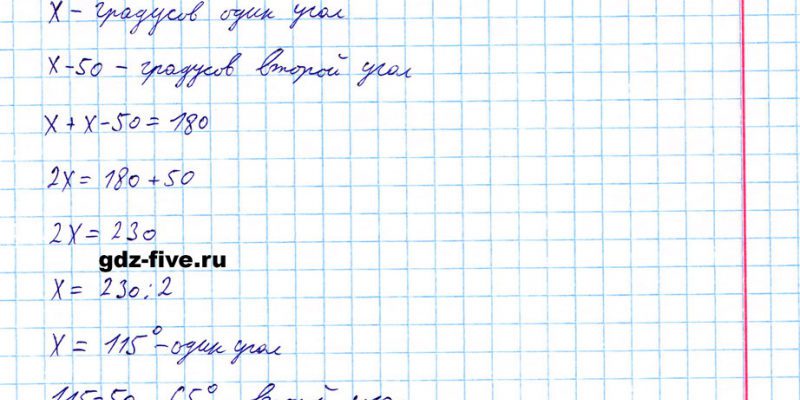 x – градусов один угол
x-50 – градусов второй угол
x + x - 50 = 180
2x = 180 + 50
2x = 230
gdz-five.ru
x = 230 : 2
x = 115° – один угол